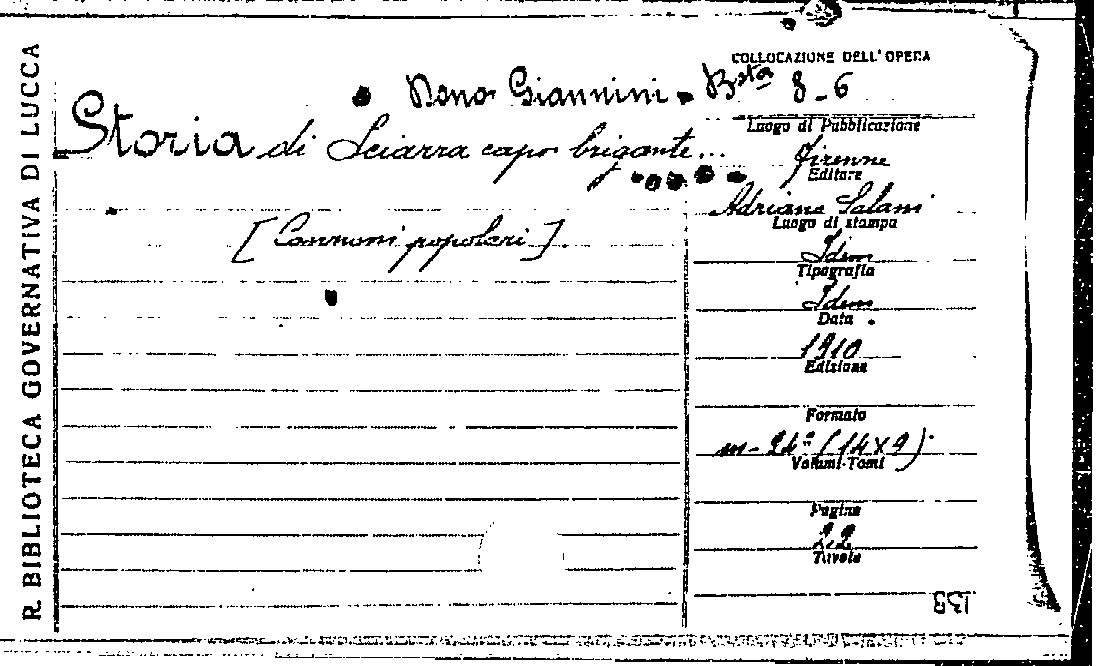 R. BIBLIOTECA GOVERNATIVA DI LUCCA
Dono Giannini. Bsta 8-6
Storia di Sciarra capo brigante...
[Canzoni popolari].
COLLOCAZIONE DELL'OPERA
Luogo di Pubblicazione
Firenze
Editore
Adriano Salani
Luogo di stampa
Idem
Tipografia
Idem
Data
1910
Edizione
Formato
in-24° (14X9)
Volumi-Tomi
Pagine
22
Tavole